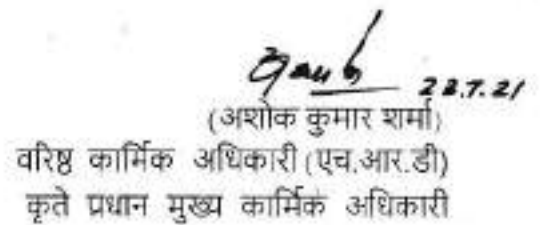 22.7.21
(अशोक कुमार शर्मा)
वरिष्ठ कार्मिक अधिकारी (एच.आर.डी)
कृते प्रधान मुख्य कार्मिक अधिकारी